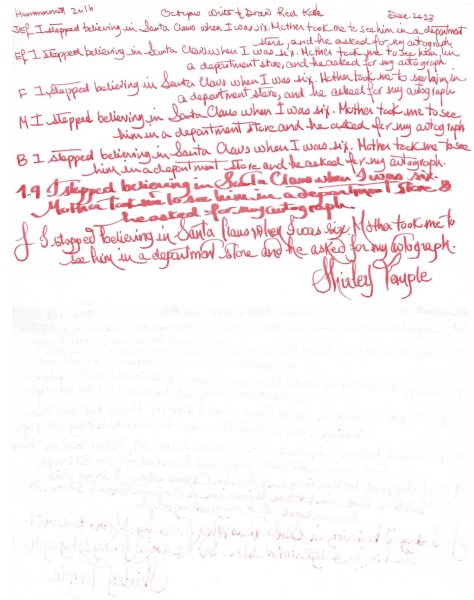 Hammermill 20lb Octopus Write & Draw Red Koi Dec 2023
JEF I stopped believing in Santa Claus when I was six. Mother took me to see him in a department
store, and he asked for my autograph.
EF I stopped believing in Santa Claus when I was six. Mother took me to see him in
a department store, and he asked for my autograph
F I stopped believing in Santa Claus when I was six. Mother took me to see him in
a department store, and he asked for my autograph
M I stopped believing in Santa Claus when I was six. Mother took me to see
him in a department store and he asked for my autograph
B I stopped believing in Santa Claus when I was six. Mother took me to see
him in a department store and he asked for my autograph.
1.9 I stopped believing in Santa Claus when I was six.
Mother took me to see him in a department store &
he asked for my autograph.
f I stopped believing in Santa Claus when I was six. Mother took me to
see him in a department store and he asked for my autograph.
Shirley Temple